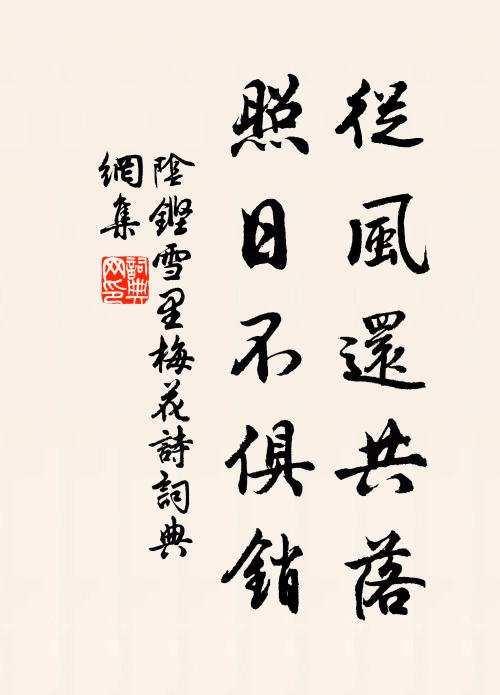 從風還共落
照日不俱銷
陰鏗雪里梅花詩詞典
網集
詞典
网印